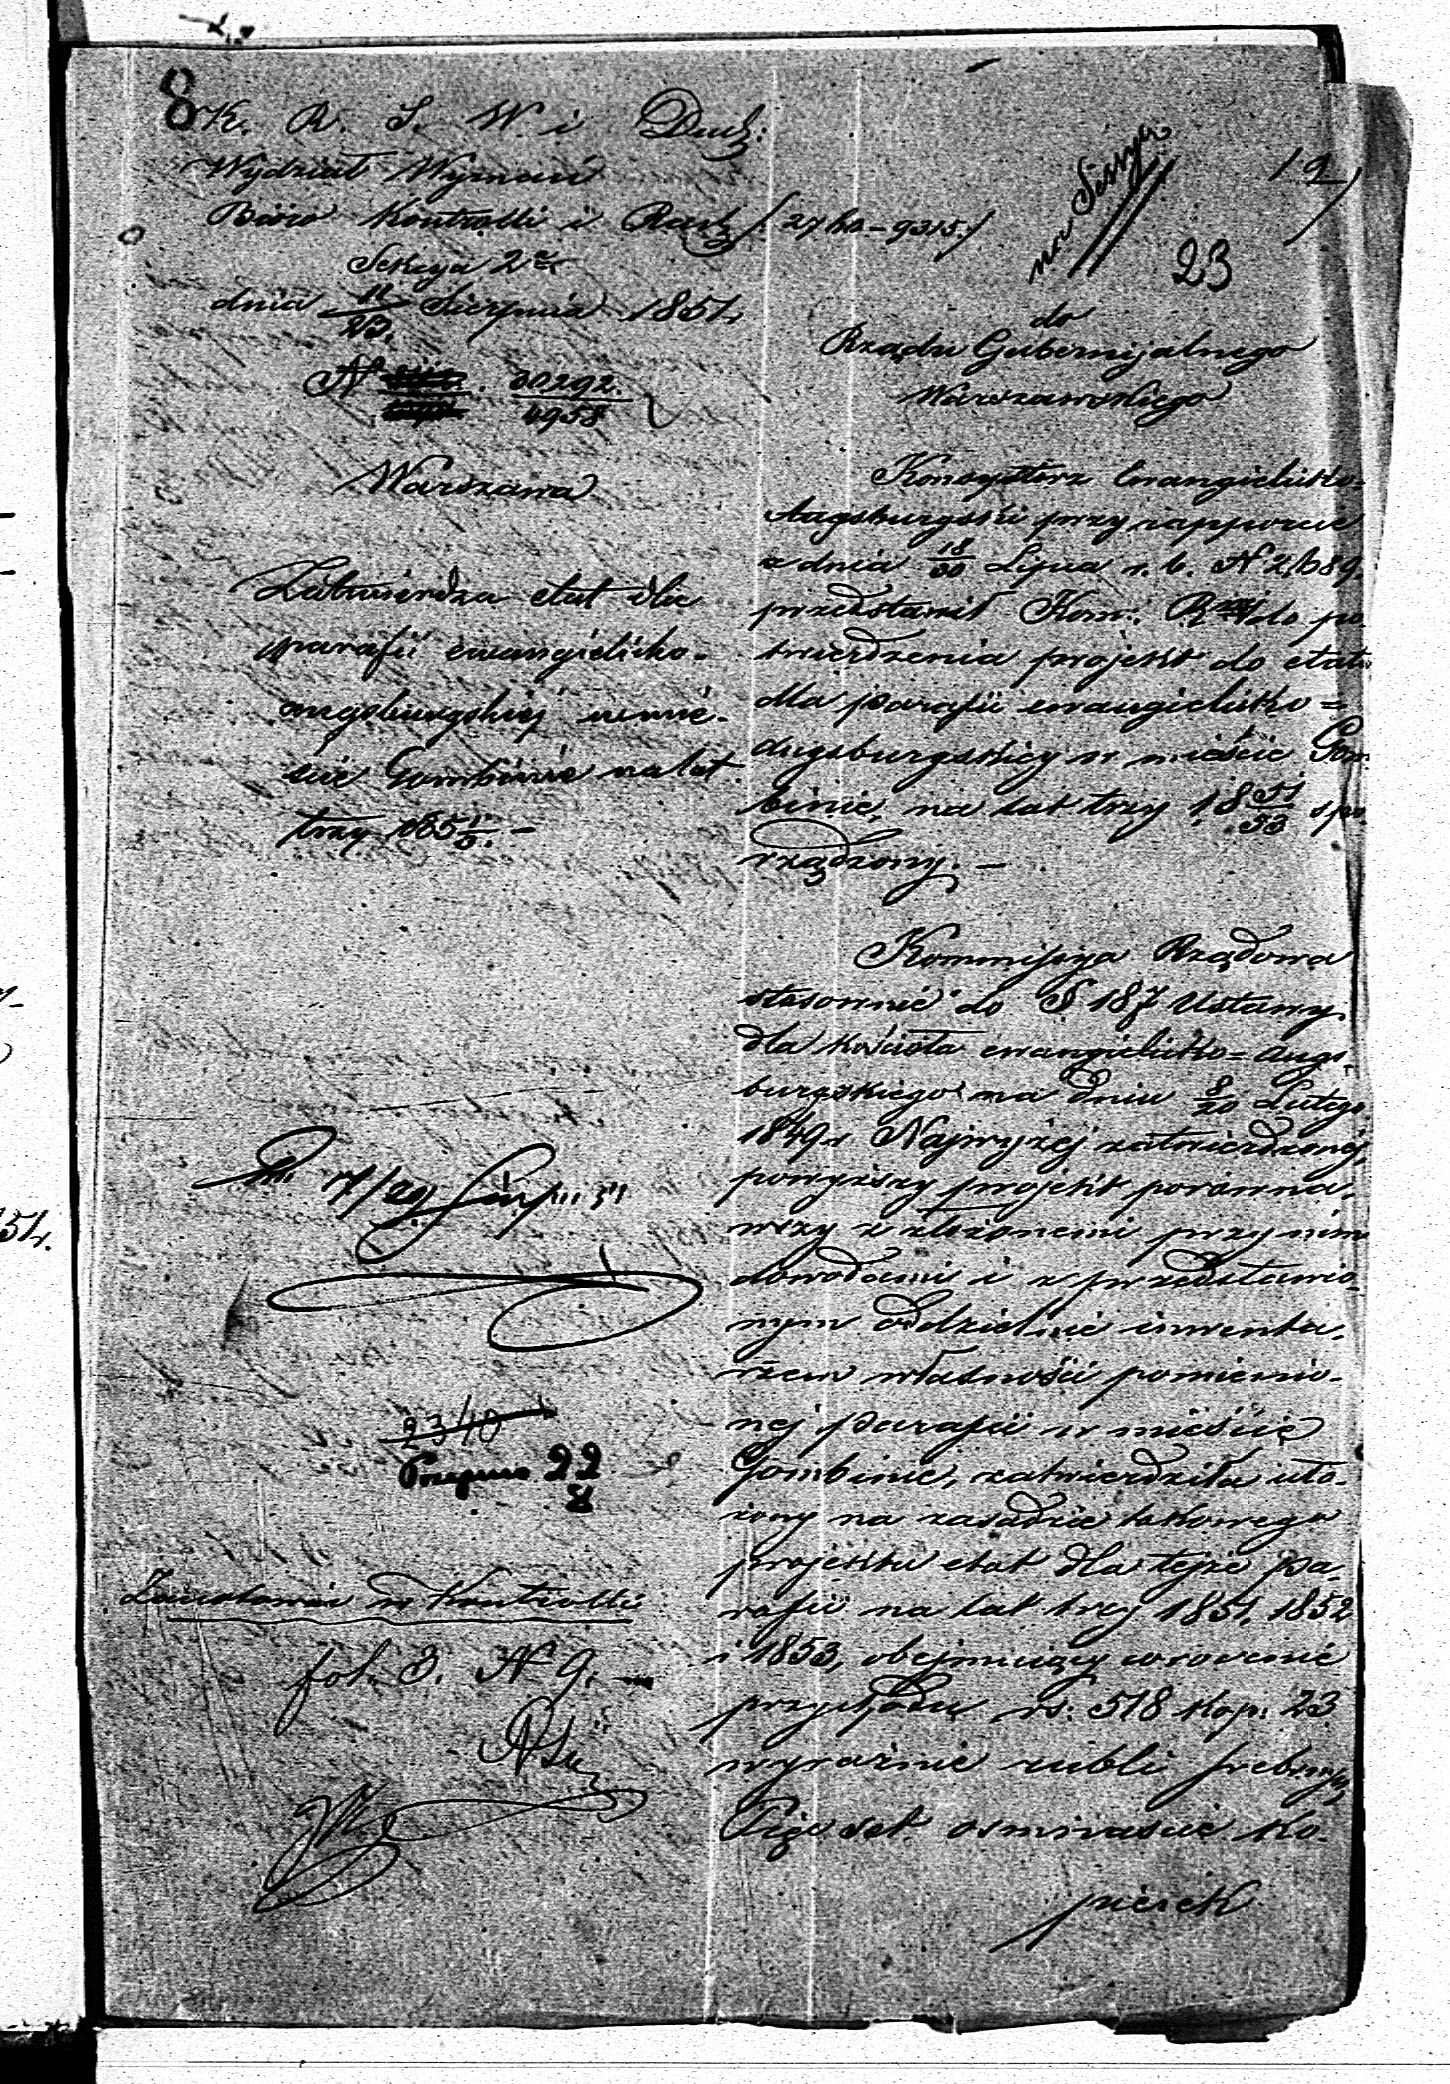 8
K. R. S. W. i Duch:
Wydział Wyznań
Bióro Kontrolli i Rach /27/
Sekcya 2a
dnia 11/23 Sierpnia 1851 r.
N 4958
Warszawa
Zatwierdza etat dla
parafii ewangielicko-
augsburgskiej w mieś-
cie Gombinie na lat
trzy 185 1/3. —
23/10
22
8
Zanotowano w Kontrolli
fol. 8. N 9. —
na Sessyi
19
23
do
Rządu Gubernijalnego
Warszawskiego
Konsystorz Ewangielicko-
Augsburgski przy rapporcie
z dnia 18/30 Lipca r. b. N
przedstawił Kom: Rząd: do po-
twierdzenia projekt do etatu
dla parafii ewangielicko=
augsburgskiej w mieście Gom-
binie, na lat trzy 18 51/53 spo-
rządzony. —
Kommissya Rządowa
stosownie do § 187 Ustawy
dla kościoła ewangielicko=augs-
burgskiego na dniu 8/20 Lutego
1849 r Najwyżej zatwierdzonej,
powyższy projekt porówna-
wszy z złożonemi przy nim
dowodami i z przedstawio-
nym oddzielnie inwenta-
rzem własności pomienio-
nej parafii w mieście
Gombinie, zatwierdziła uło-
żony na zasadzie takowego
projektu etat dla tejże pa-
rafii na lat trzy 1851, 1852
i 1853, obejmujący w rocznie
przychodu rs: 518 kop: 23
wyraźnie rubli srebrnych
Pięćset osmnaście ko-
piejek